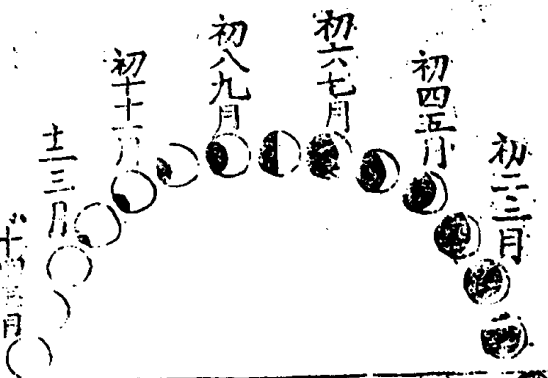 初二三月
初四五月
初六七月
初八九月
初十十一月
十二三月
十四五月